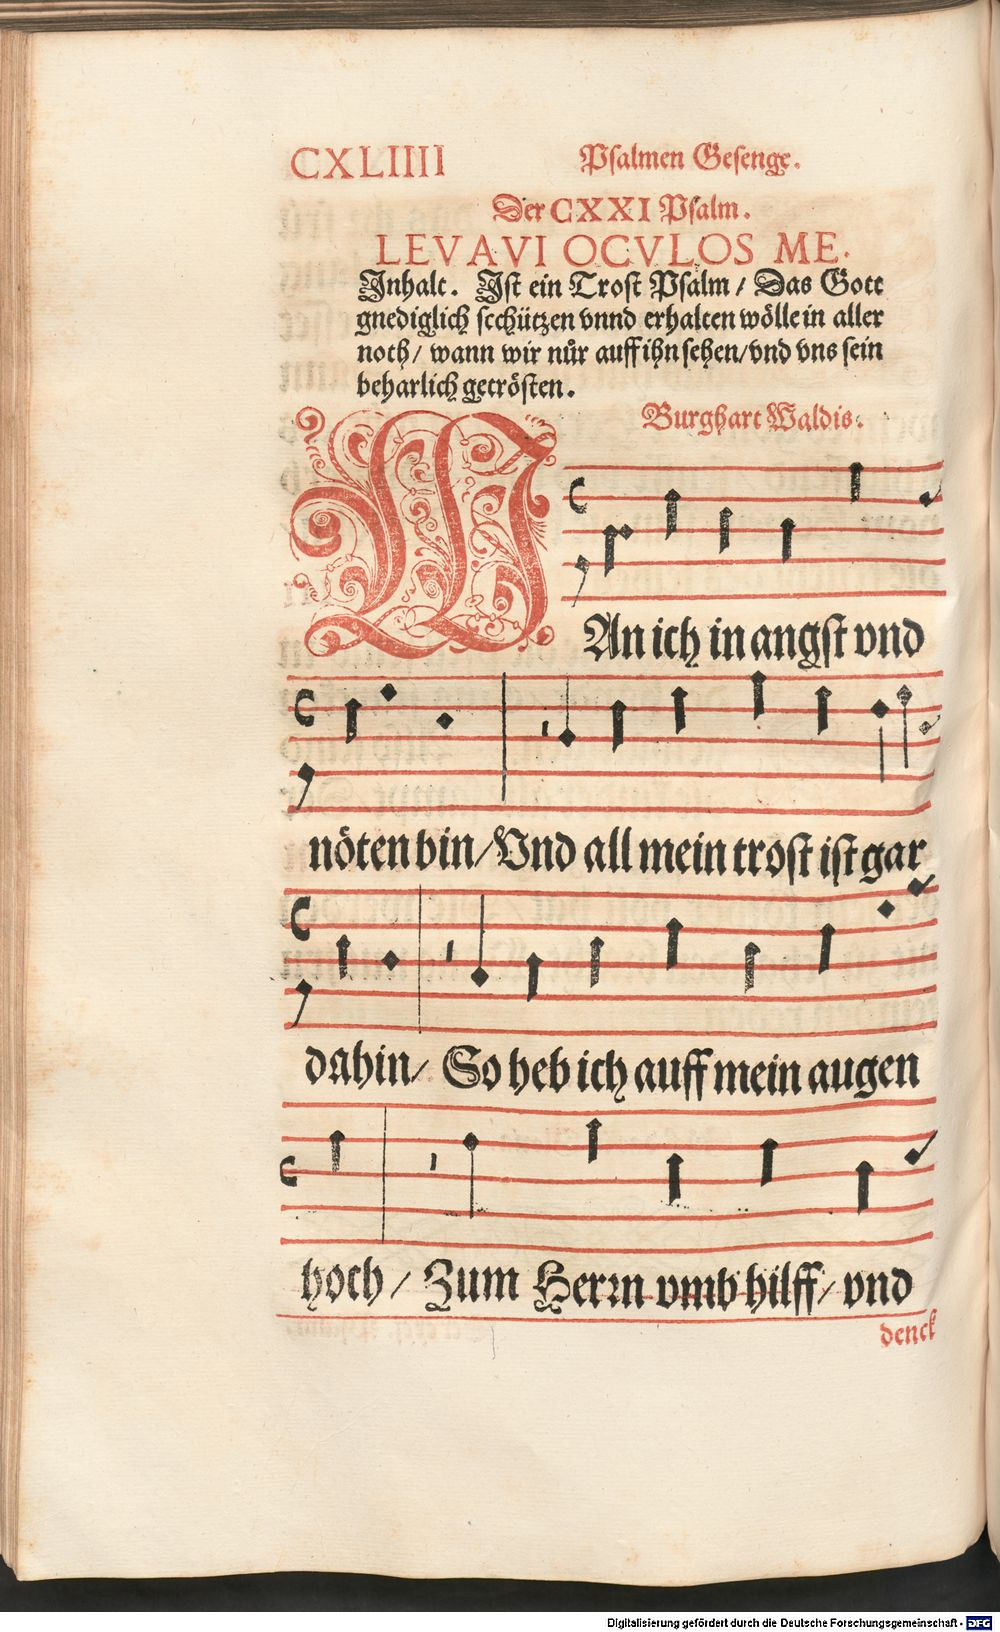 CXLIIII Psalmen Gesenge.
Der CXXI Psalm.
LEVAVI OCVLOS ME.
Inhalt. Ist ein Trost Psalm / Das Gott
gnediglich scchützen vnnd erhalten wölle in aller
noth / wann wir nůr auff ihn sehen / vnd vns sein
beharlich getrösten.
Burghart Waldis.
WAn ich in angst vnd
nöten bin / Vnd all mein trost ist gar
dahin / So heb ich auff mein augen
hoch / Zum Herrn vmb hilff / vnd
denck
Digitalisierung gefördert durch die Deutsche Forschungsgemeinschaft - DFG